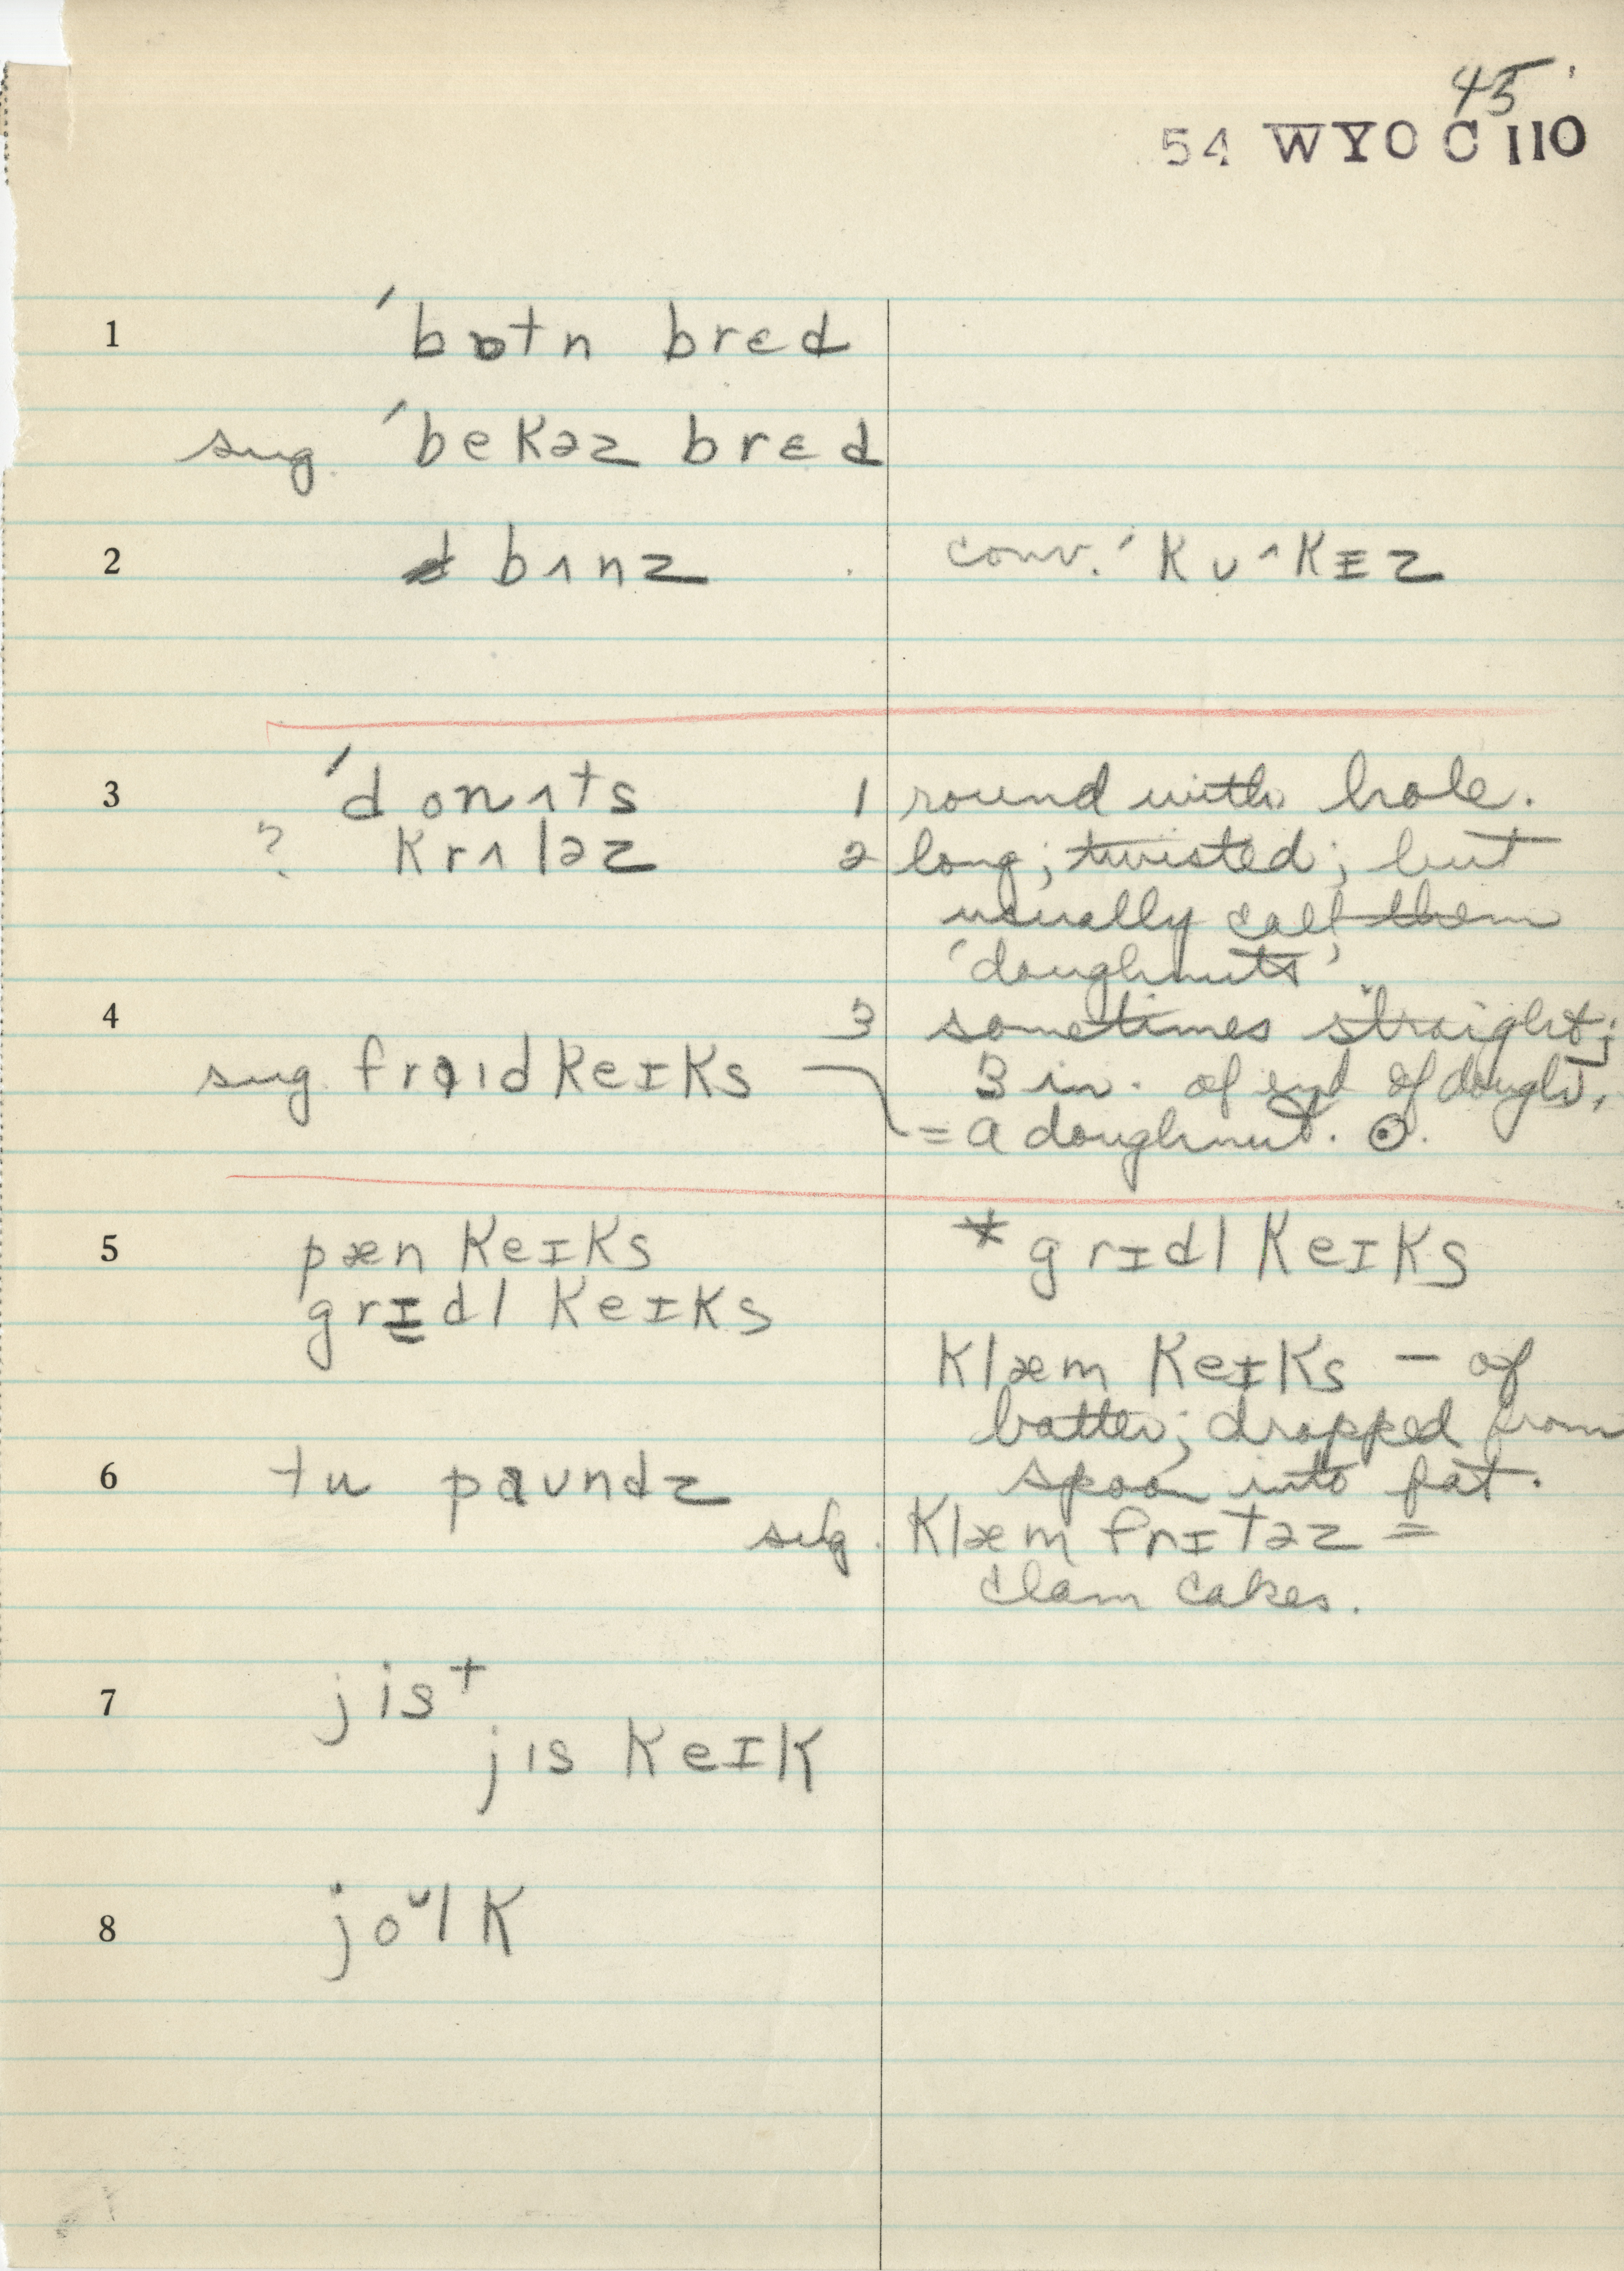 45
54 WYOC 110
1 ˊbɒtn brɛd
sug. ˊbekəz brɛd
2 bʌnz conv. ˊkʊˆkɪz
3 ˊdonʌts 1 round with hole.
? krʌləz 2 long; twisted; but
usually call them
'doughnuts'
4 3 sometimes straight;
sug. fraɪd keɪks 3 in. of end of dough,
= a doughnut. ⊙.
5 pæn keɪks * grɪdl keɪks
grɪdl keɪks
klæm keɪks – of
batter; dropped from
6 tu paʊndz spoon into fat.
sug. klæm frɪtəz =
clam cakes.
7 jist
jis keɪk
8 joᵘlk